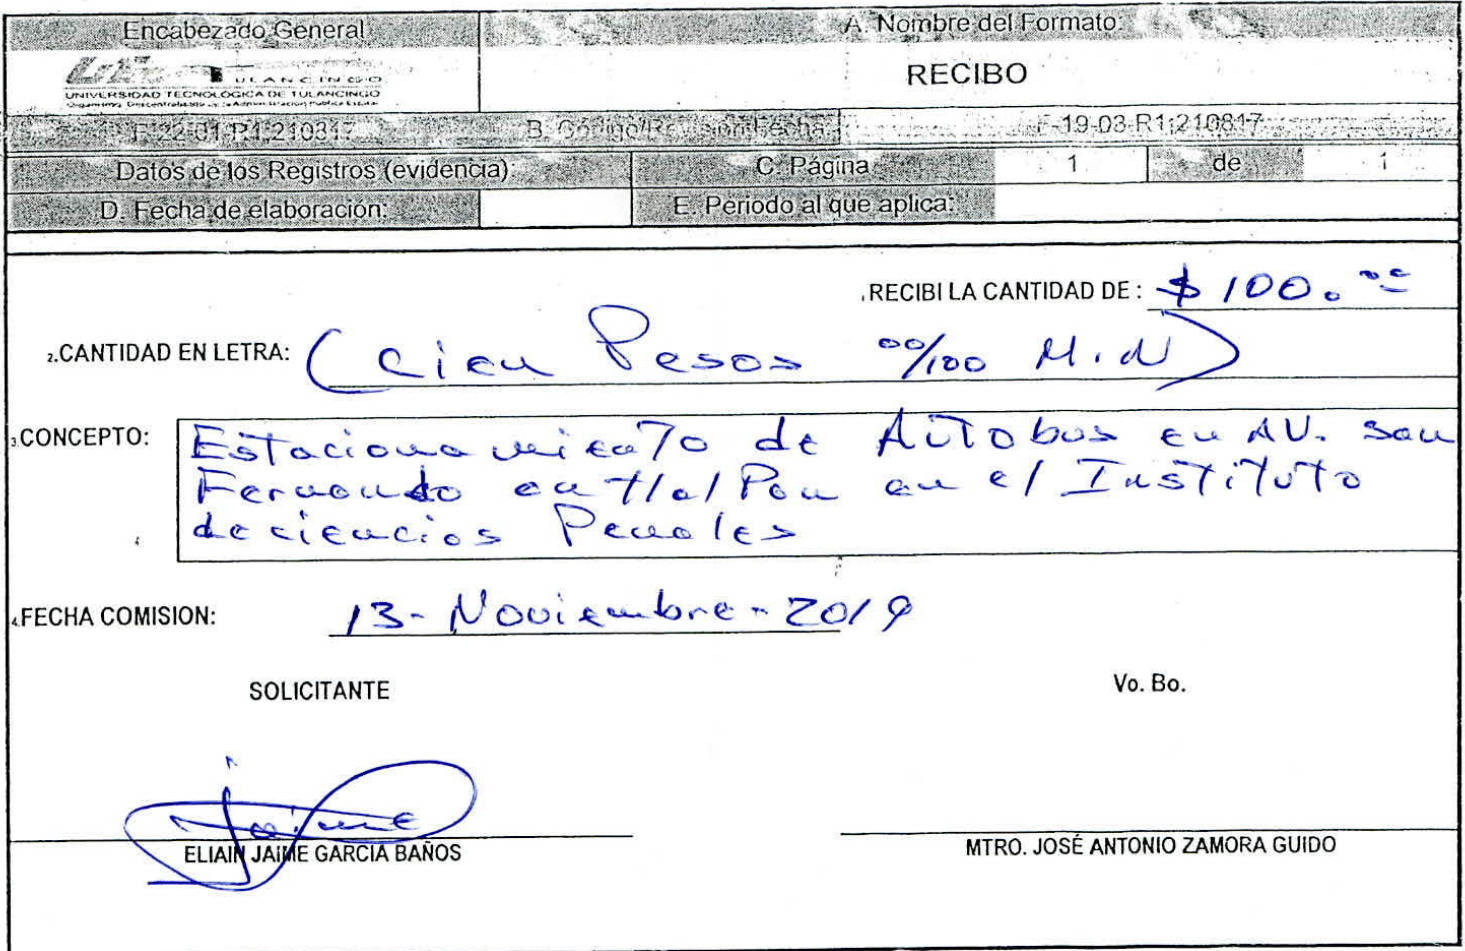 Encabezado General
A. Nombre del Formato:
TULANCINGO
UNIVERSIDAD TECNOLÓGICA DE TULANCINGO
RECIBO
F-22-01-R1:210817
B. Código/Revisión/Fecha:
F-19-03-R1:210817
Datos de los Registros (evidencia)
C. Página
1
de
1
D. Fecha de elaboración:
E. Periodo al que aplica:
1.RECIBI LA CANTIDAD DE: $100.00
2.CANTIDAD EN LETRA: (Cien Pesos 00/100 M.N)
3.CONCEPTO: Estacionamiento de Autobus en AV. San
Fernando en tlalPan en el Instituto
de ciencias Penales
4.FECHA COMISION: 13-Noviembre-2019
SOLICITANTE
Vo. Bo.
Jaime
ELIAIN JAIME GARCIA BAÑOS
MTRO. JOSÉ ANTONIO ZAMORA GUIDO